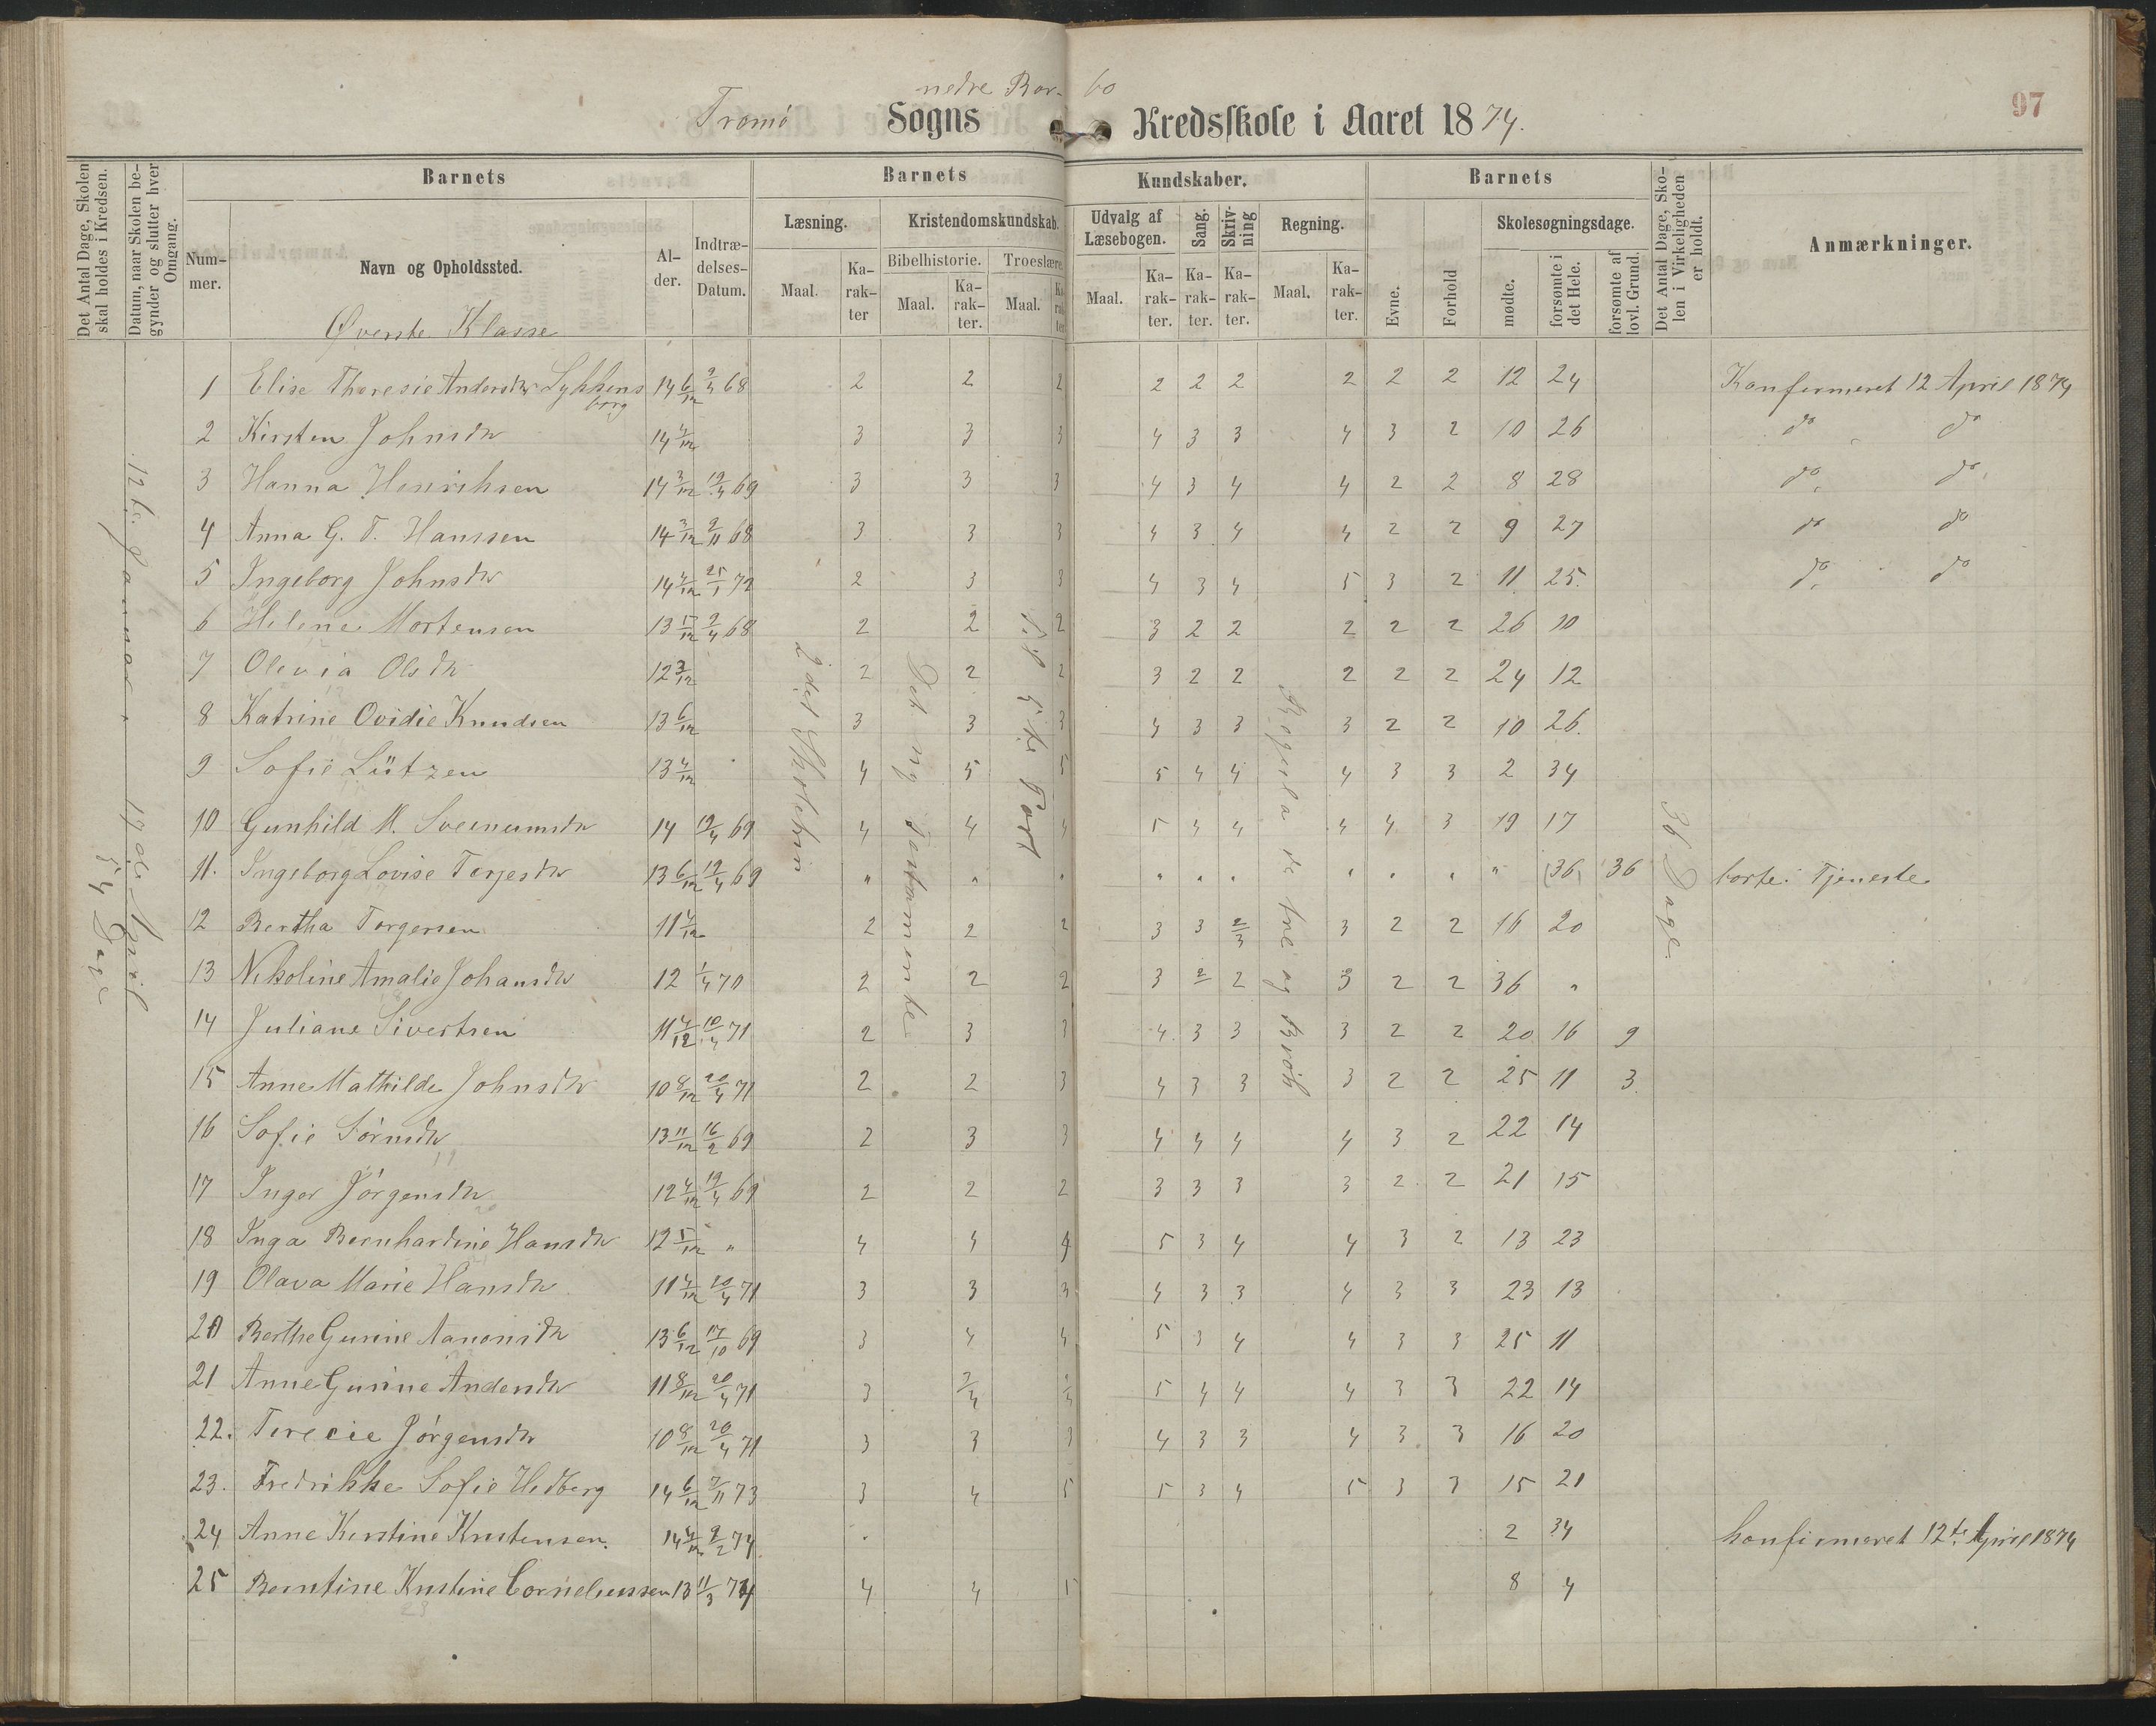 nedre Bor- bo
Tromø Sogns Kredsskole i Aaret 1874.
97
Det Antal Dage, Skolen skal holdes i Kredsen.
Datum, naar Skolen begynder og slutter hver Omgang.
Barnets
Barnets
Kundskaber.
Barnets
Det Antal Dage, Skolen i Virkeligheden er holdt.
Anmærkninger.
Nummer.
Navn og Opholdssted.
Alder.
Indtrædelses-Datum.
Læsning.
Kristendomskundskab.
Udvalg af Læsebogen.
Sang.
Skrivning
Regning.
Skolesøgningsdage.
Bibelhistorie.
Troeslære.
Maal. Karakter Maal. Karakter. Maal. Karakter Maal. Karakter. Karakter. Karakter. Maal. Karakter. Evne. Forhold mødte. forsømte i det Hele. forsømte af lovl. Grund.
Øverste Klasse
1 Elise Theresie Andersdtr Lykkens borg 14 6/12 9/4 68 2 2 2 2 2 2 2 2 2 12 24 Konfirmeret 12 April 1874
2 Kirsten Johnsdtr 14 4/12 3 3 3 4 3 3 4 3 2 10 26 do do
3 Hanna Henriksen 14 3/12 19/4 69 3 3 3 4 3 4 4 2 2 8 28 do do
4 Anna G. T. Hanssen 14 3/12 9/11 68 3 3 3 4 3 4 4 2 2 9 27 do do
5 Ingeborg Johnsdtr 14 4/12 25/1 72 2 3 3 4 3 4 5 3 2 11 25. do do
6 Helene Mortensen 13 9/4 68 2 2 2 3 2 2 2 2 2 26 10
7 Olevia Olsdtr 12 3/12 2 2 2 3 2 2 2 2 2 24 12
8 Katrine Ovidie Knudsen 13 6/12 3 3 3 4 3 3 3 2 2 10 26.
9 Sofie Lützen 13 4/12 4 5 5 5 4 4 4 3 3 2 34
10 Gunhild M. 14 19/4 69 4 4 4 5 4 4 4 4 3 19 17
11. Ingeborg Lovise Terjesdtr 13 6/12 19/4 69 " " " " " " " " " " (36) 36 borte i Tjeneste
12 Bertha Torgersen 11 4/12 2 2 2 3 3 2/3 3 2 2 16 20
13 Nikoline Amalie Johansdtr 12 1/4 70 2 2 2 3 2 2 3 2 2 36 "
14 Juliane Sivertsen 11 4/12 10/4 71 2 3 3 4 3 3 3 2 2 20 16 9
15 Anne Mathilde Johnsdtr 10 8/12 20/4 71 2 2 3 4 3 3 3 2 2 25 11 3
16 Sofie Sørnsdtr 13 11/12 16/2 69 2 3 3 4 4 4 4 3 2 22 14
17 Inger Jörgensdtr 12 4/12 19/4 69 2 2 2 3 3 3 3 2 2 21 15
18 Inga Bernhardine Hansdtr 12 5/12 " 4 4 4 5 3 4 4 3 2 13 23
19 Olava Marie Hansdtr 11 4/12 20/4 71 3 3 3 4 3 3 4 3 3 23 13
20 Berthe Gurine Aanonsdtr 13 6/12 17/10 69 3 4 4 5 3 4 4 3 3 25 11
21 Anne Gurine Andersdtr 11 8/12 20/4 71 3 3/4 3/4 5 4 4 4 3 3 22 14
22. Terecie Jörgensdtr 10 8/12 20/4 71 3 3 3 4 3 3 4 3 3 16 20
23. Fredrikke Sofie Hedberg 14 6/12 3/11 73 3 4 5 5 3 4 5 3 3 15 21
24 Anne Kirstine Kristensen. 14 4/12 9/2 74 2 34 konfirmeret 12te April 1874
25 Berntine Kristine Corneliussen 13 11/3 74 4 4 5 8 4
12te Januar 17de April
54 Dage
2det Skoletrin
Det ny Testamente
Til 5te Part
Regula de tre og Brøk
36 Dage.